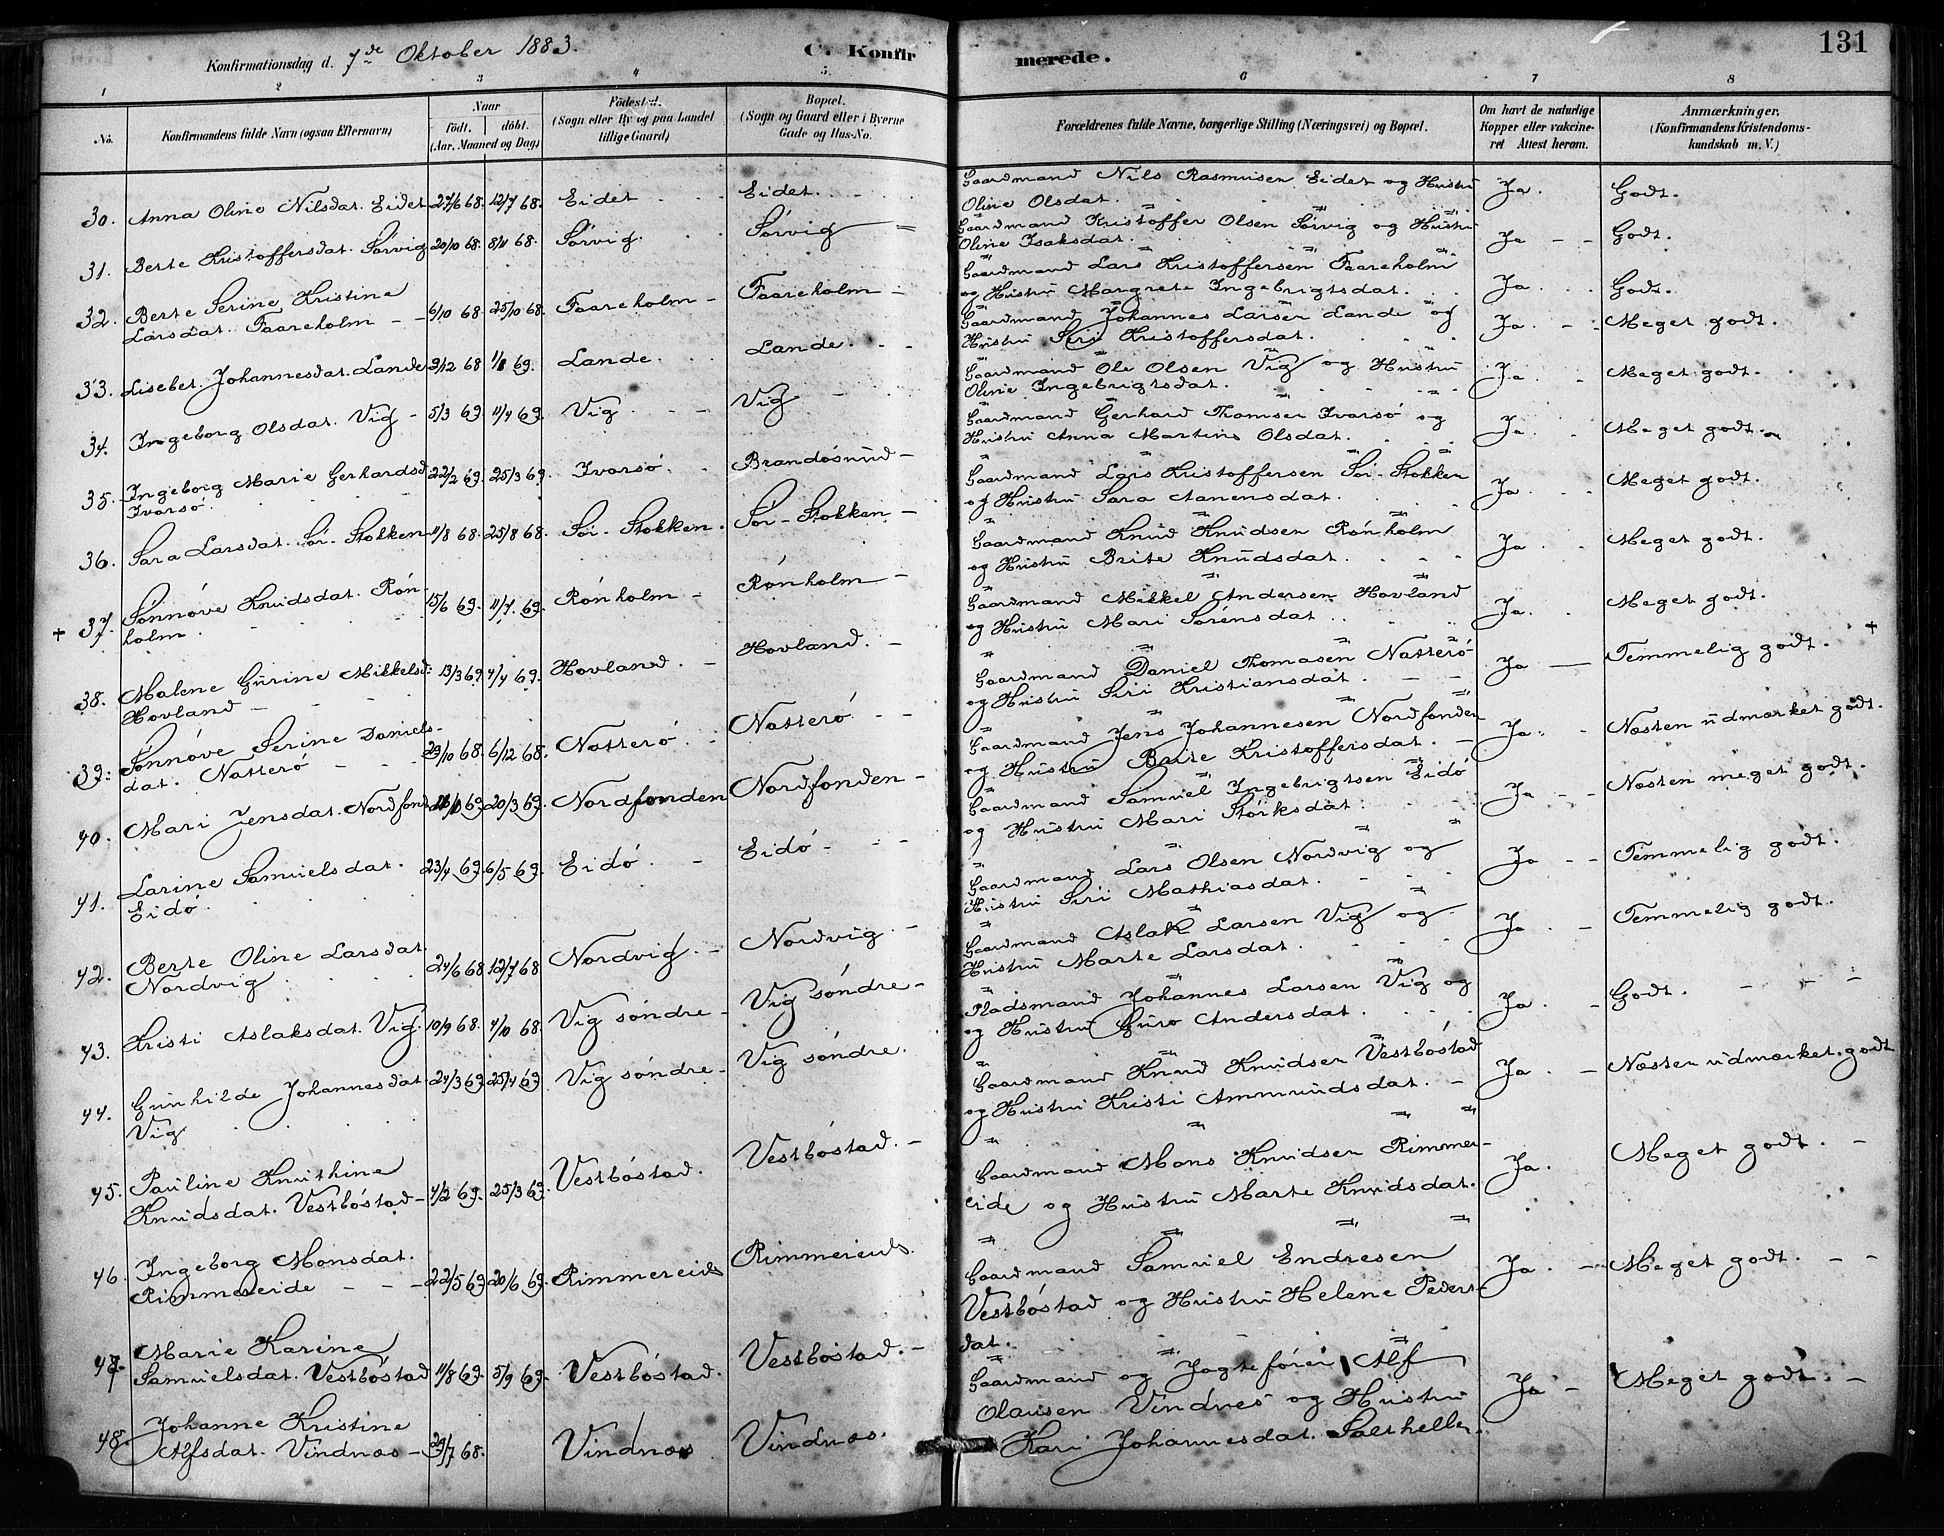 131
Konfirmationsdag d. 7de Oktober 1883.
C. Konfirmerede.
1 2 3 4 5 6 7 8
No.
Konfirmandens fulde Navn (ogsaa Efternavn)
Naar
födt. döbt.
(Aar, Maaned og Dag)
Födested.
(Sogn eller By og paa Landet
tillige Gaard)
Bopæl.
(Sogn og Gaard eller i Byerne
Gade og Hus-No.
Forældrenes fulde Navne, borgerlige Stilling (Næringsvei) og Bopæl.
Om havt de naturlige
Kopper eller vakcineret Attest herom.
Anmærkninger.
(Konfirmandens Kristendomskundskab m. V.)
30. Anna Oline Nilsdat. Eidet 27/6 68. 12/7 68. Eidet Eidet. Gaardmand Nils Rasmusen Eidet og Hustru
Oline Olsdat. Ja. Godt.
31. Berte Kristoffersdat. Sørvig 20/10 68. 8/11 68. Sørvig. Sørvig Gaardmand Kristoffer Olsen Sørvig og Hustru
Oline Isaksdat. Ja Godt.
32. Berte Serine Kristine
Larsdat. Faareholm 6/10 68. 25/10 68. Faareholm Faareholm Gaardmand Lars Kristoffersen Faareholm
og Hustru Margrete Ingebrigtsdat. Ja. Godt.
33. Lisebet Johannesdat. Lande 9/12 68 1/8 69. Lande. Lande. Gaardmand Johannes Larsen Lande og
Hustru Siri Kristoffersdat. Ja. Meget godt.
34. Ingeborg Olsdat. Vig 5/3 69. 11/4 69. Vig Vig Gaardmand Ole Olsen Vig og Hustru
Oline Ingebrigtsdat. Ja. Meget godt.
35. Ingeborg Marie Gerhardsd.
Ivarsø. 22/2 69. 25/3 69. Ivarsø. Brandøsund Gaardmand Gerhard Thomsen Ivarsø og
Hustru Anna Martins Olsdat. Ja. Meget godt.
36. Sara Larsdat. Sør-Stokken 11/8 68. 25/8 68. Sør-Stokken. Sør-Stokken Gaardmand Lars Kristoffersen Sør-Stokken
og Hustru Sara Aanensdat. Ja. Meget godt.
+ 37. Sønnøve Knudsdat. Rønholm. 15/6 69. 11/7. 69. Rønholm Rønholm Gaardmand Knud Knudsen Rønholm
og Hustru Brite Knudsdat. Ja. Meget godt.
38. Malene Gurine Mikkelsd:
Hovland 13/3 69. 4/4 69. Hovland. Hovland. Gaardmand Mikkel Andersen Hovland
og Hustru Mari Sørensdat. Ja. Meget godt. +
39. Sønnøve Serine Danielsdat. Natterø 29/10 68. 6/12 68. Natterø. Natterø Gaardmand Daniel Thomasen Natterø
og Hustru Siri Kristiansdat. Ja Temmelig godt.
40. Mari Jensdat. Nordfond. 20/3 69. Nordfonden Nordfonden Gaardmand Jens Johannesen Nordfonden
og Hustru Brite Kristoffersdat. Ja. Næsten udmærket godt.
41. Larine Samuelsdat.
Eidø. 23/4 69. 6/5 69. Eidø. Eidø Gaardmand Samuel Ingebrigtsen Eidø
og Hustru Mari Størksdat. Ja Næsten meget godt.
42. Berte Oline Larsdat.
Nordvig 24/6 68 12/7 68 Nordvig. Nordvig. Gaardmand Lars Olsen Nordvig og
Hustru Siri Mathiasdat. Ja Temmelig godt.
43. Kristi Aslaksdat. Vig. 10/9 68. 4/10 68. Vig søndre Vig søndre Gaardmand Aslak Larsen Vig og
Hustru Marte Larsdat. Ja Temmelig godt.
44. Gunhilde Johannesdat
Vig 24/3 69 25/4 69 Vig søndre Vig søndre. Pladsmand Johannes Larsen Vig og
og Hustru Guro Andersdat. Ja. Godt.
45. Pauline Knuthine
Knudsdat. Vestbøstad 4/2 69. 25/3 69. Vestbøstad. Vestbøstad. Gaardmand Knud Knudsen Vestbøstad
og Hustru Kristi Ammundsdat. Ja. Næsten udmærket godt
46. Ingeborg Monsdat.
Rimmereide 22/5 69 20/6 69. Rimmereide Rimmereide. Gaardmand Mons Knudsen Rimmereide og Hustru Marte Knudsdat. Ja. Meget godt.
47. Marie Karine
Samuelsdat. Vestbøstad 11/8 69. 5/9 69. Vestbøstad. Vestbøstad. Gaardmand Samuel Endresen
Vestbøstad og Hustru Helene Pedersdat. Ja. Meget godt.
48. Johanne Kristine
Alfsdat. Vindnæs 29/7 68. Vindnæs Vindnæs. Gaardmand og Jagtefører Alf
Olausen Vindnes og Hustru
Kari Johannesdat. Salthelle. Ja Meget godt.